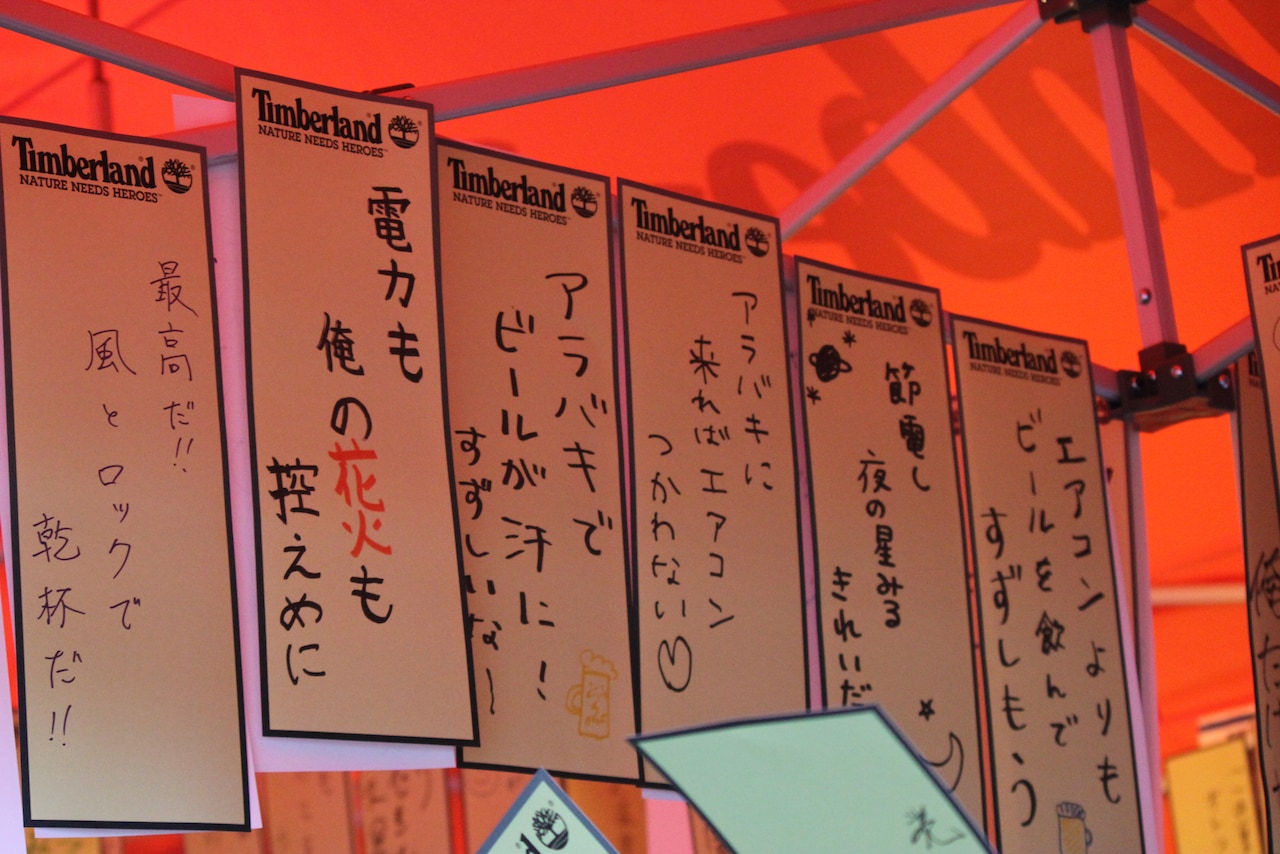 Timberland
NATURE NEEDS HEROES™
最高だ!!
風とロックで
乾杯だ!!
Timberland
NATURE NEEDS HEROES™
電力も
俺の花火も
控えめに
Timberland
NATURE NEEDS HEROES™
アラバキで
ビールが汗に!
すずしいな〜
Timberland
NATURE NEEDS HEROES™
アラバキに
来ればエアコン
つかわない♡
Timberland
NATURE NEEDS HEROES™
節電し
夜の星みる
きれいだ
Timberland
NATURE NEEDS HEROES™
エアコンよりも
ビールを飲んで
すずしもう